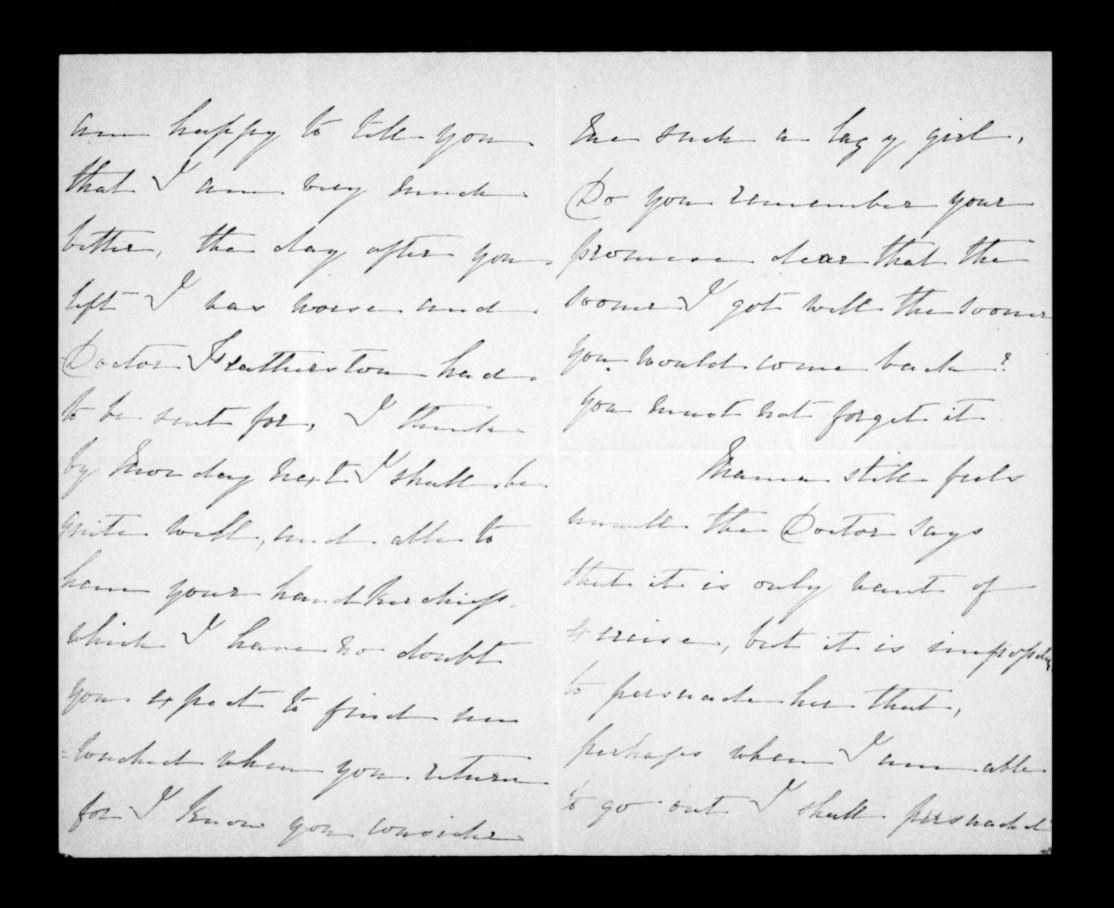 am happy to tell you
that I am very much
better, the day after you
left I was worse and
Doctor Featherston had
to be sent for, I think
by Monday next I shall be
quite well, and able to
hem your handkerchiefs.
which I have no doubt
you expect to find un
=touched when you return
for I know you consider
me such a lazy girl,
Do you remember your
promise dear that the
sooner I got well the sooner
you would come back?
you must not forget it
Mama still feels
unwell the Doctor says
that it is only want of
but it is
to persuade her that,
perhaps when I am able
to go out I shall persuade